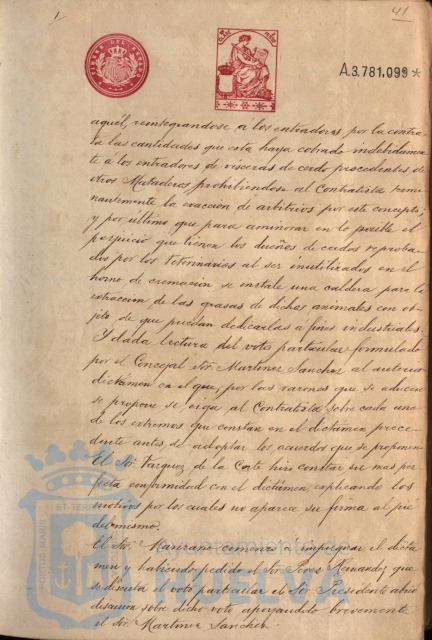 41
A.3.781,099*
aquél, reintegrandose a los entradores por la contra-
ta las cantidades que esta haya cobrado indebidamen-
te a los entradores de vísceras de cerdo procedentes de
otros Mataderos prohibiendose al Contratista termi-
nantemente la exacción de arbitrios por este concepto;
y por ultimo que para aminorar en lo posible el
perjuicio que tienen los dueños de cerdos reproba-
dos por los Veterinarios al ser inutilizados en el
horno de cremación se instale una caldera para la
extracción de las grasas de dichos animales con ob-
jeto de que puedan dedicarlas a fines industriales.
Y dada lectura del voto particular formulado
por el Concejal Sr. Martinez Sanchez al anterior
dictámen en el que, por las razones que se aducen
se propone se oiga al Contratista sobre cada uno
de los extremos que constan en el dictámen prece-
dente antes de adoptar los acuerdos que se proponen
El Sr. Vazquez de la Corte hizo constar su mas per-
fecta conformidad con el dictámen, explicando los
motivos por los cuales no aparece su firma al pié
del mismo.
El Sr. Manzano comenzó a impugnar el dicta-
men y habiendo pedido el Sr. Perez Hernandez que
se discuta el voto particular el Sr. Presidente abrió
discusion sobre dicho voto apoyandolo brevemente
el Sr. Martinez Sanchez.
Ayuntamiento de
HUELVA